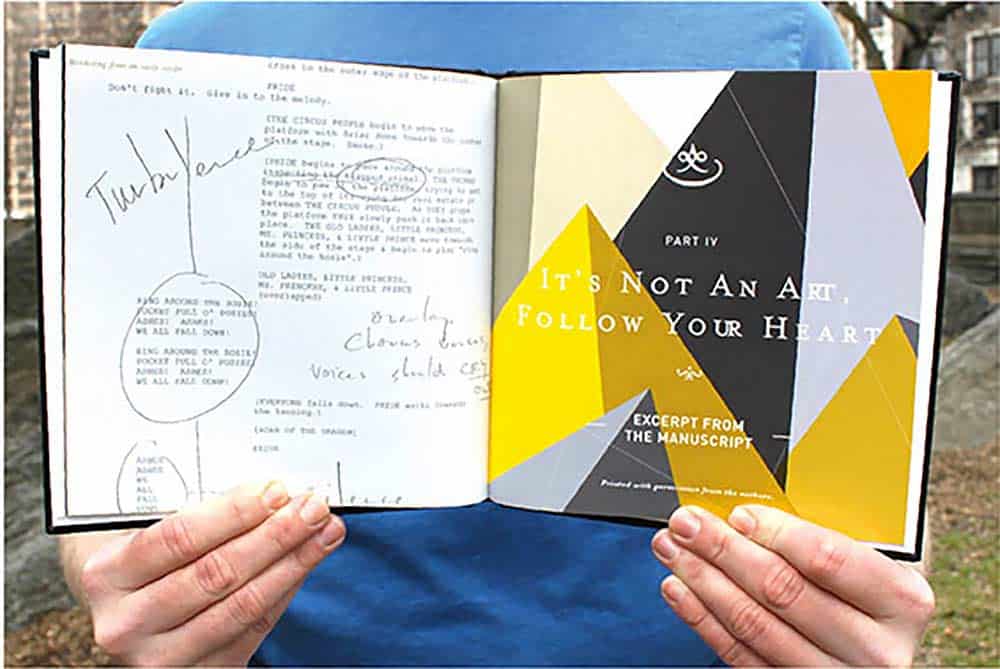 from an early script
the outer edge of the platform.
PRIDE
Don't fight it. Give in to the melody.
(THE CIRCUS PEOPLE begin to move the
platform with towards the
of the stage. Smoke.)
Turbulence
(PRIDE begins to around the platform
the THE
begin to the platform, trying to get
to the top of it, real estate
between THE CIRCUS PEOPLE. As they
the platform THEY slowly push it back into
place. THE OLD LADIES, LITTLE PRINCESS,
MS. PRINCESS, & LITTLE PRINCE move towards
the side of the stage & begin to play "ring
around the rosie".)
OLD LADIES, LITTLE PRINCESS,
MS. PRINCESS, & LITTLE PRINCE
(overlapped)
RING AROUND THE ROSIE!
POCKET FULL O' POSIES!
ASHES! ASHES!
WE ALL FALL DOWN!
RING AROUND THE ROSIE!
POCKET FULL O' POSIES!
ASHES! ASHES!
WE ALL FALL DOWN!
Overlap
Chorus
Voices should
(EVERYONE falls down. PRIDE walks towards
the
(ROAR OF THE DRAGON)
PRIDE
ASHES
ASHES
WE
ALL
FALL
DOWN
PART IV
It's Not An Art,
Follow Your Heart
EXCERPT FROM
THE MANUSCRIPT
Printed with permission from the authors.